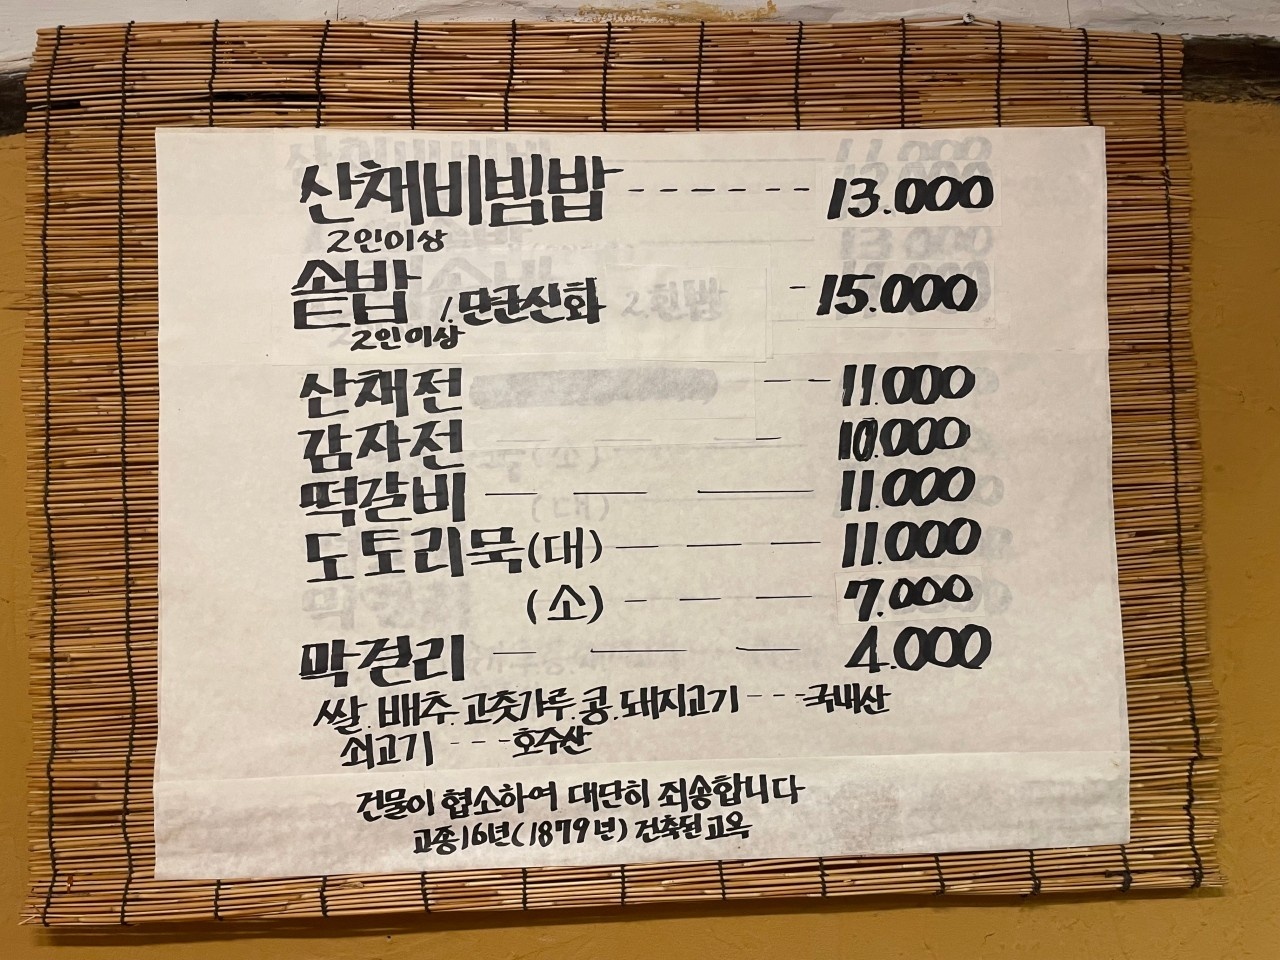 산채비빔밥 ------ 13.000
2인이상
솥밥 1.단란신화 - 15.000
2인이상
산채전 -- 11.000
감자전 --- 10.000
떡갈비 --- 11.000
도토리묵(대) ---- 11.000
(소) ---- 7.000
막걸리 --- 4.000
쌀.배추.고춧가루.콩.돼지고기 --- 국내산
쇠고기 --- 호주산
건물이 협소하여 대단히 죄송합니다
고종16년(1879년) 건축된 고옥